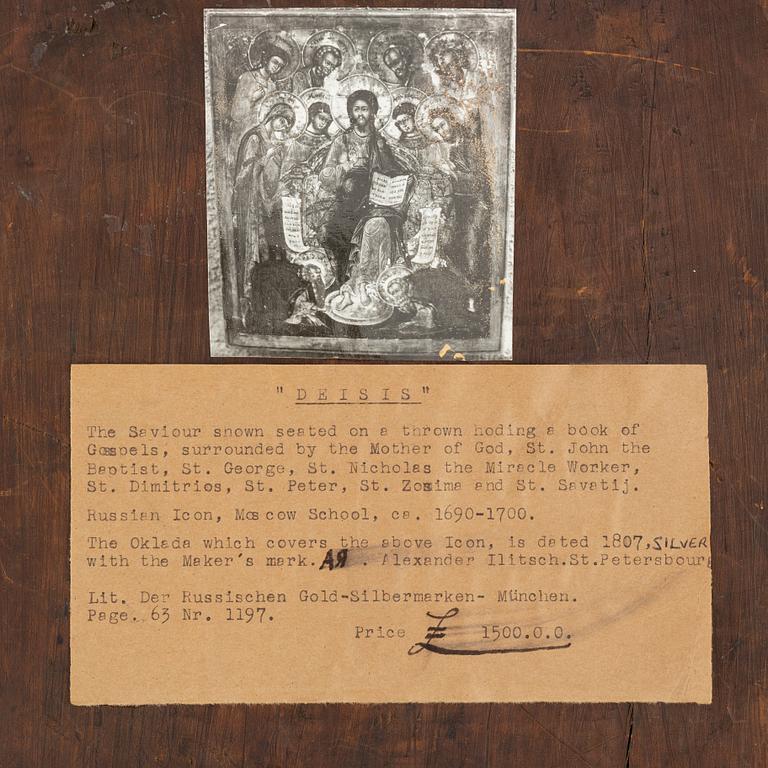 " D E I S I S "
The Saviour snown seated on a thrown hoding a book of
Gospels, surrounded by the Mother of God, St. John the
Baptist, St. George, St. Nicholas the Miracle Worker,
St. Dimitrios, St. Peter, St. Zosima and St. Savatij.
Russian Icon, Moscow School, ca. 1690-1700.
The Oklada which covers the above Icon, is dated 1807, SILVER
with the Maker's mark. АЯ . Alexander Ilitsch.St.Petersbourg
Lit. Der Russischen Gold-Silbermarken- München.
Page. 63 Nr. 1197.
Price £ 1500.0.0.